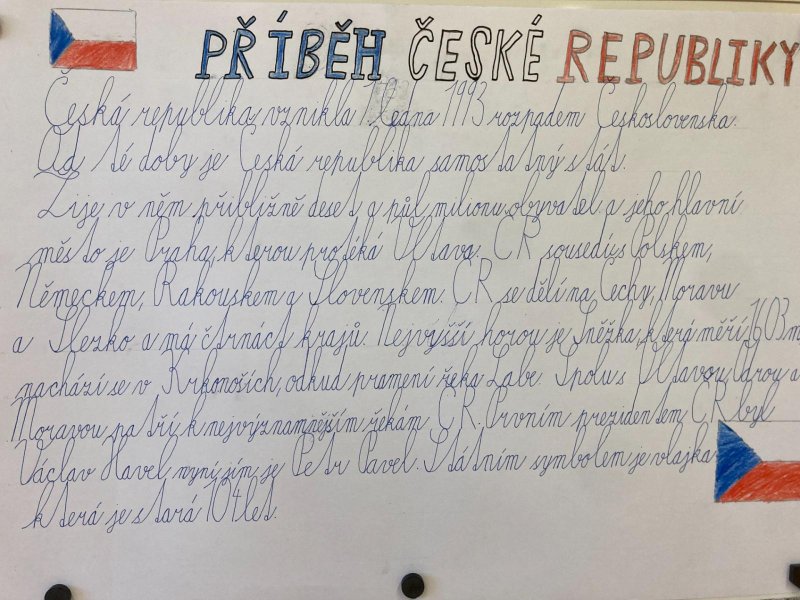 PŘÍBĚH ČESKÉ REPUBLIKY
Česká republika vznikla 1. ledna 1993 rozpadem Československa.
Od té doby je Česká republika samostatný stát.
Žije v něm přibližně deset a půl milionu obyvatel a jeho hlavní
město je Praha, kterou protéká Vltava. ČR sousedí s Polskem,
Německem, Rakouskem a Slovenskem. ČR se dělí na Čechy, Moravu
a Slezko a má čtrnáct krajů. Nejvyšší horou je Sněžka, která měří 1603 m
nachází se v Krkonoších, odkud pramení řeka Labe. Spolu s Vltavou, Odrou a
Moravou patří k nejvýznamnějším řekám ČR. Prvním prezidentem ČR byl
Václav Havel, nynějším je Petr Pavel. Státním symbolem je vlajka
která je stará 104 let.